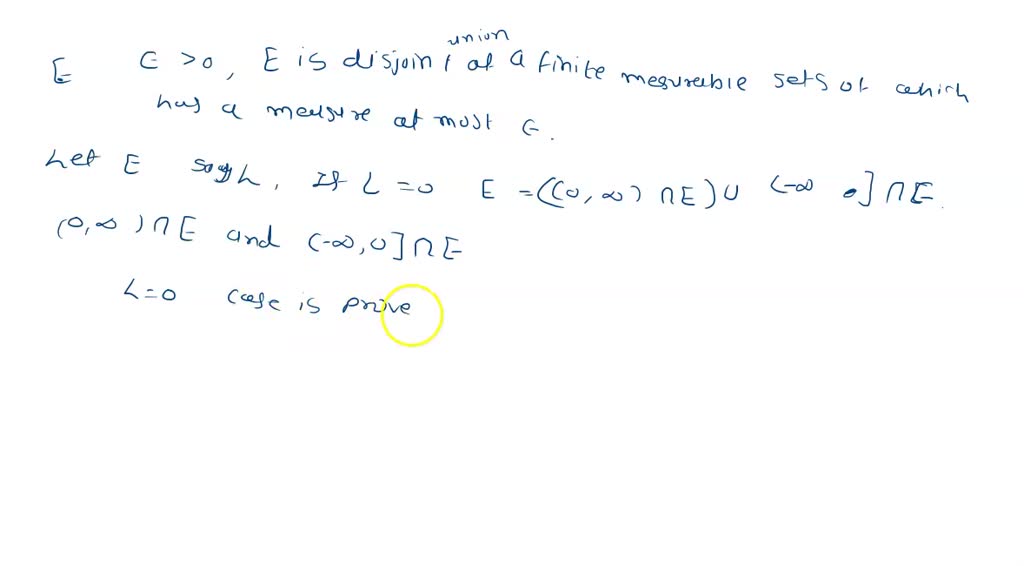 union
E   ∈ > 0 , E is disjoint of a finite mesurable sets of which
has a measure at most ∈ .
Let E say L , If L = 0   E = ((0, ∞) ∩ E) ∪ (-∞ 0] ∩ E .
(0, ∞) ∩ E and (-∞, 0] ∩ E
L = 0   case is prove